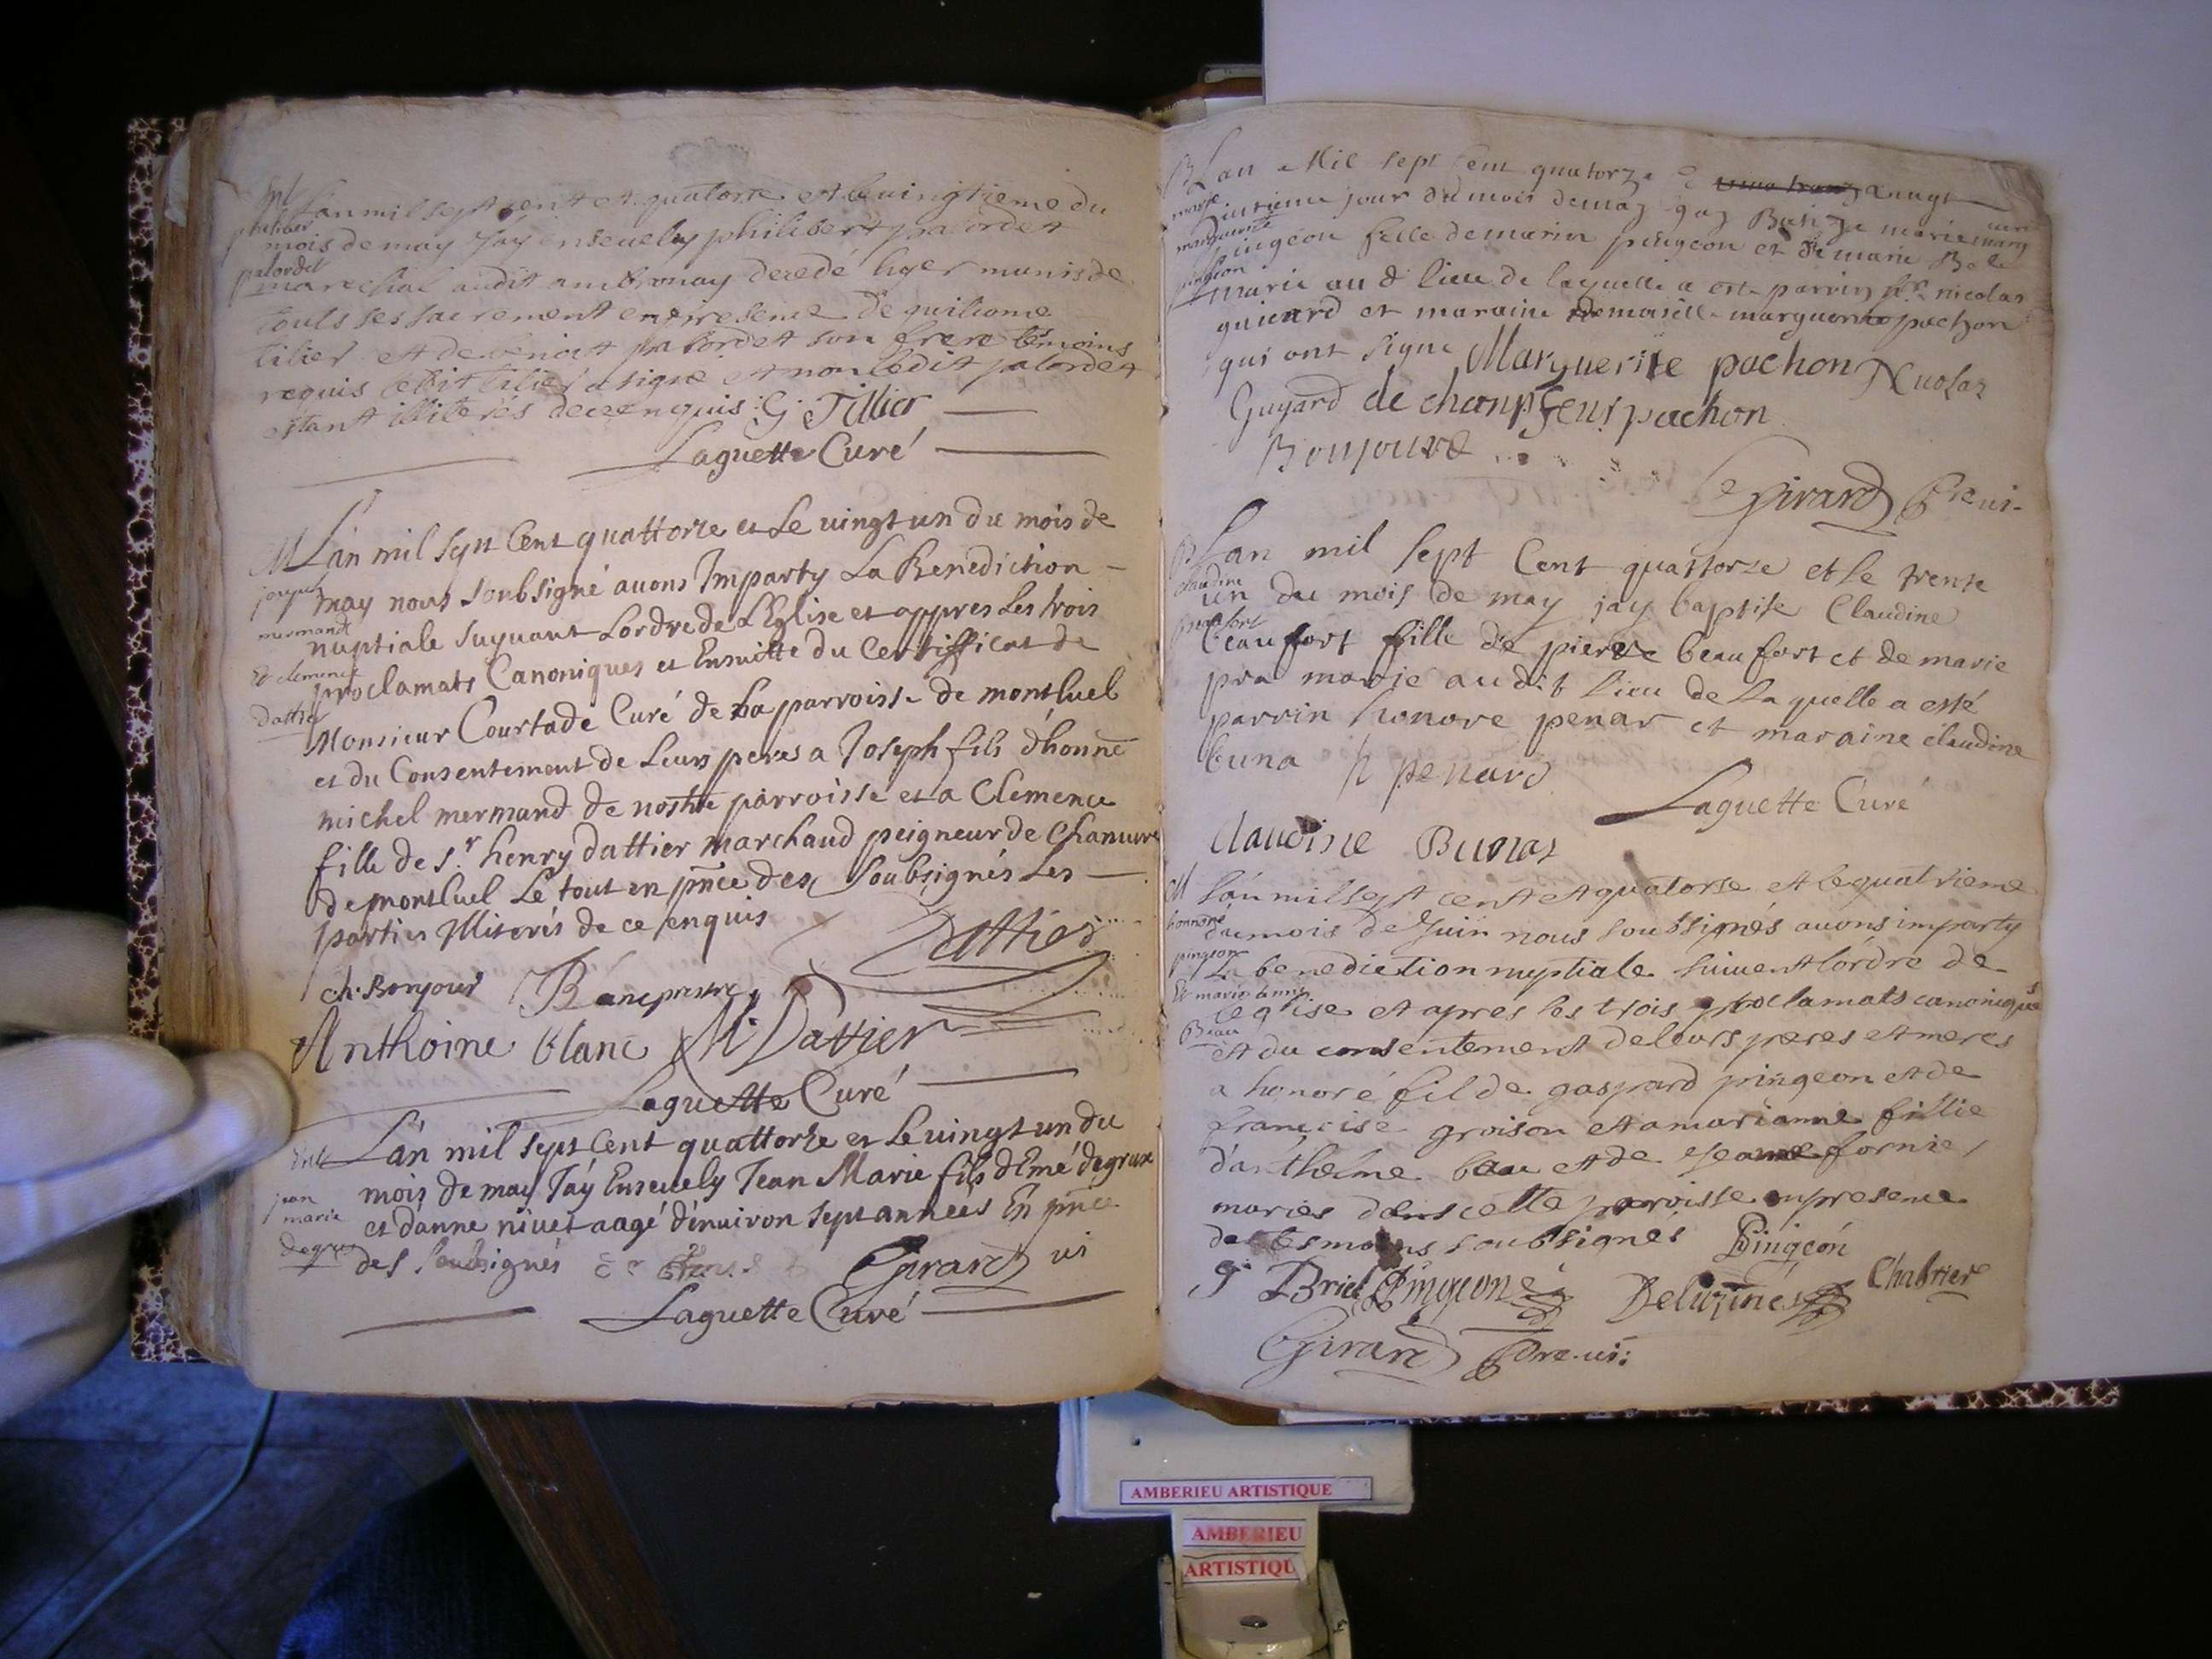 Lan mil sept cent et quatorse et le vingtieme du
philiber
mois de may J'ay enseuely philibert palordet
palordet
marechal audit ambronay decedé hyer munis de
touts ses sacrement en presence de guiliome
tilier et de benoit palordet son frere témoins
requis ledit tilier a signé et non ledit palordet
estant illiterés de ce enquis G Tillier
Laguette Curé
M
L'an mil sept Cent quattorze et Le vingt un du mois de
joseph
may nous soubsigné auons Imparty La Benediction
mermand
nuptiale suyuant Lordre de L'Eglise et appres Les trois
Et clemence
proclamats Canoniques et Ensuitte du Certifficat de
Dattier
Monsieur Courtade Curé de La parroisse de montluel
et du Consentement de Leurs peres a Joseph fils d'honne
michel mermand de nostre parroisse et a Clemence
fille de s.r henry dattier marchand peigneur de Chanure
de montluel Le tout en pnce des soubsignés Les
parties Illiterés de ce enquis
Dattier
ch. Bonjour
Anthoine blanc M Dattier
Laguette Curé
L'an mil sept Cent quattorze et Le vingt un du
mois de may J'ay Enseuely Jean Marie fils d'Emé degrus
jean
marie
et d'anne niuet aagé d'enuiron sept années En pnce
degrus
des soubsignés Girard vi
Laguette Curé
B
Lan Mil sept Cent quatorze
marie
jour du mois de may jay
marguerite
pingeon fille de marin pingeon et de marie
pingeon
marie au d lieu de laquelle a este parrin sr nicolas
guiard et maraine demoiselle marguerite pachon
qui ont signe Marguerite pachon Nicolas
Guyard de champ pachon
Bonjour
Girard vi.
B
Lan mil sept Cent quattorze et le trente
claudine
un du mois de may jay baptise Claudine
beaufort
beaufort fille de pierre beaufort et de marie
pra marie audit lieu de laquelle a esté
parrin honore penar et maraine claudine
buna h penard
Laguette Curé
Claudine Bunaz
M
L'an mil sept cent et quatorse et le quatrieme
honnoré
du mois de Juin nous soubsignés auons imparty
pingeon
La benediction nuptiale suiuent l'ordre de
Et marie anne
leglise et apres les trois proclamats canoniques
Beau
et du consentement de leurs peres et meres
a honoré fil de gaspard pingeon et de
francise groison et a marianne fillie
d'anthelme beau et de jeanne fornier
maries dans cette parroisse en presence
des tesmoins soubsignés Pingeon
Briel Pingeon Chabrier
Girard
AMBERIEU ARTISTIQUE
AMBERIEU
ARTISTIQU